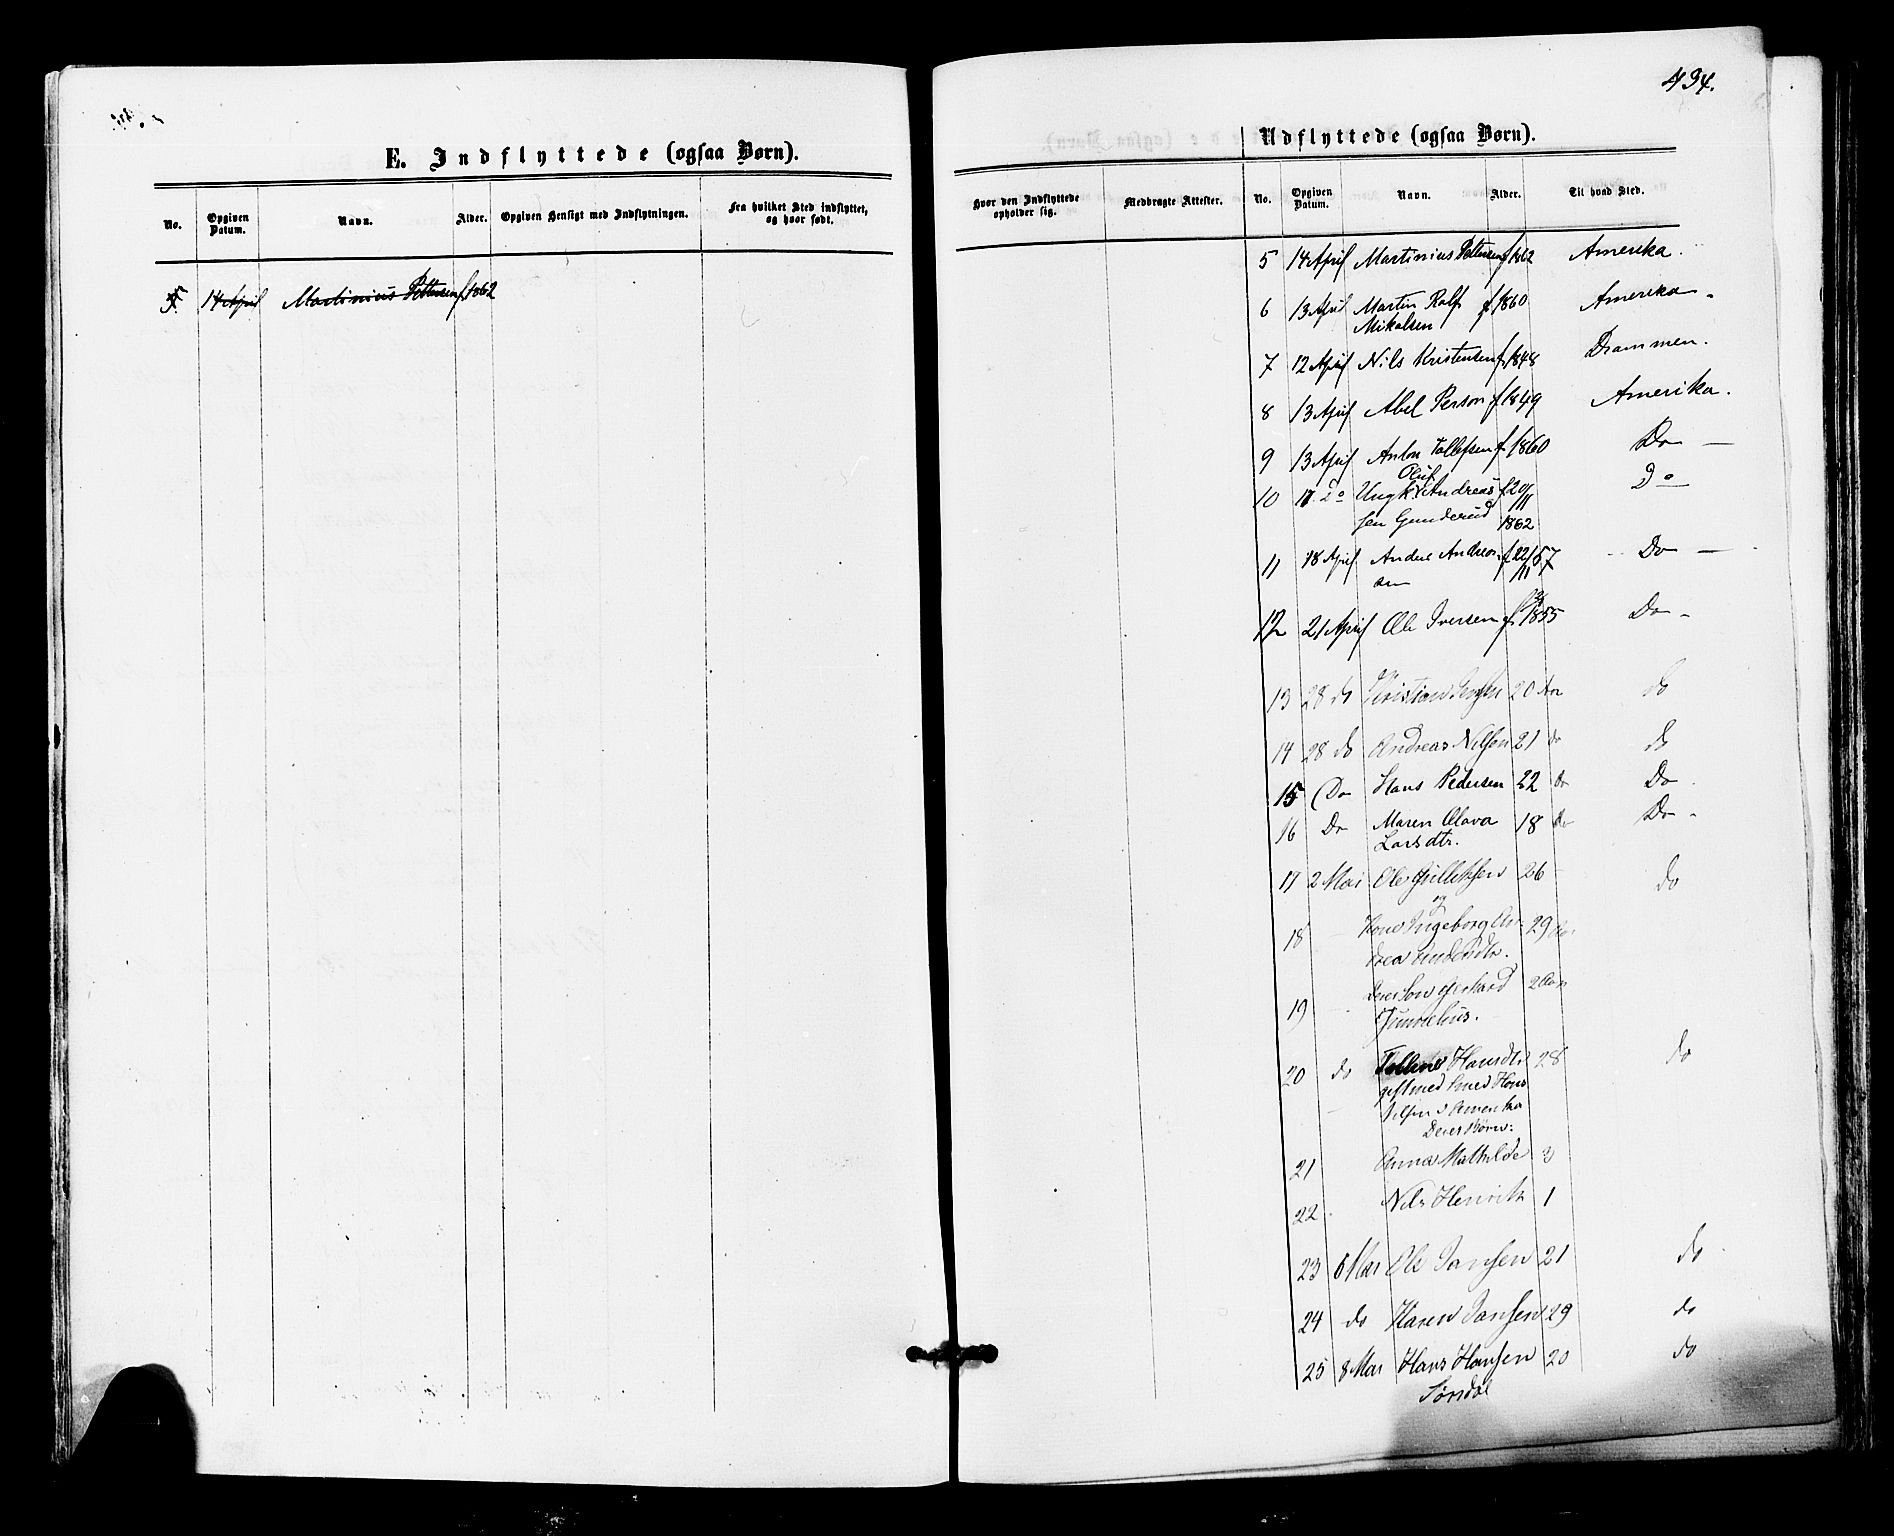 434.
E. Indflyttede (ogsaa Børn).
No. Opgiven Datum. Navn. Alder. Opgiven Hensigt med Indflytningen. Fra hvilket Sted indflyttet, og hvor født.
5 14 April Martinius Pettersen f. 1862
Udflyttede (ogsaa Børn).
Hvor den Indflyttede opholder sig. Medbragte Attester. No. Opgiven Datum. Navn. Alder. Til hvad Sted.
5 14 April Martinius Pettersen f 1862 Amerika.
6 13 April Martin Rolf f. 1860 Amerika.
Mikalsen
7 12 April Nils Kristensen f. 1848 Drammen.
8 13 April Abel Person f. 1849 Amerika.
9 13 April Anton Tollefsen f. 1860 Do
Oluf
10 17 Do Ungk Andreas f 20/11 Do
sen Gunderud 1862
11 18 April Andreas f 22/11 57 Do
sen
12 21 April Ole Iversen f. 1855 Do
13 28 do Kristian 20 Aar do
14 28 do Andreas Nilsen 21 do do
15 Do Hans Pedersen 22 do Do
16 Do Maren Olava 18 do Do
Larsdtr.
17 2 Mai Ole Gulleksen 26 do
og
18 Kone Ingeborg An- 29 Aar
drea
19 Deres Søn Gerhard 2 Aar
20 do Hansdtr 28 do
gift med Smed Hans
Nilsen i Amerika
Deres Børn:
21 Anna Mathilde 3
22 Nils Henrik 1
23 6 Mai Ole Jansen 21 do
24 do Karen Jansen 29 do
25 8 Mai Hans Hansen 20 do
Sørdal